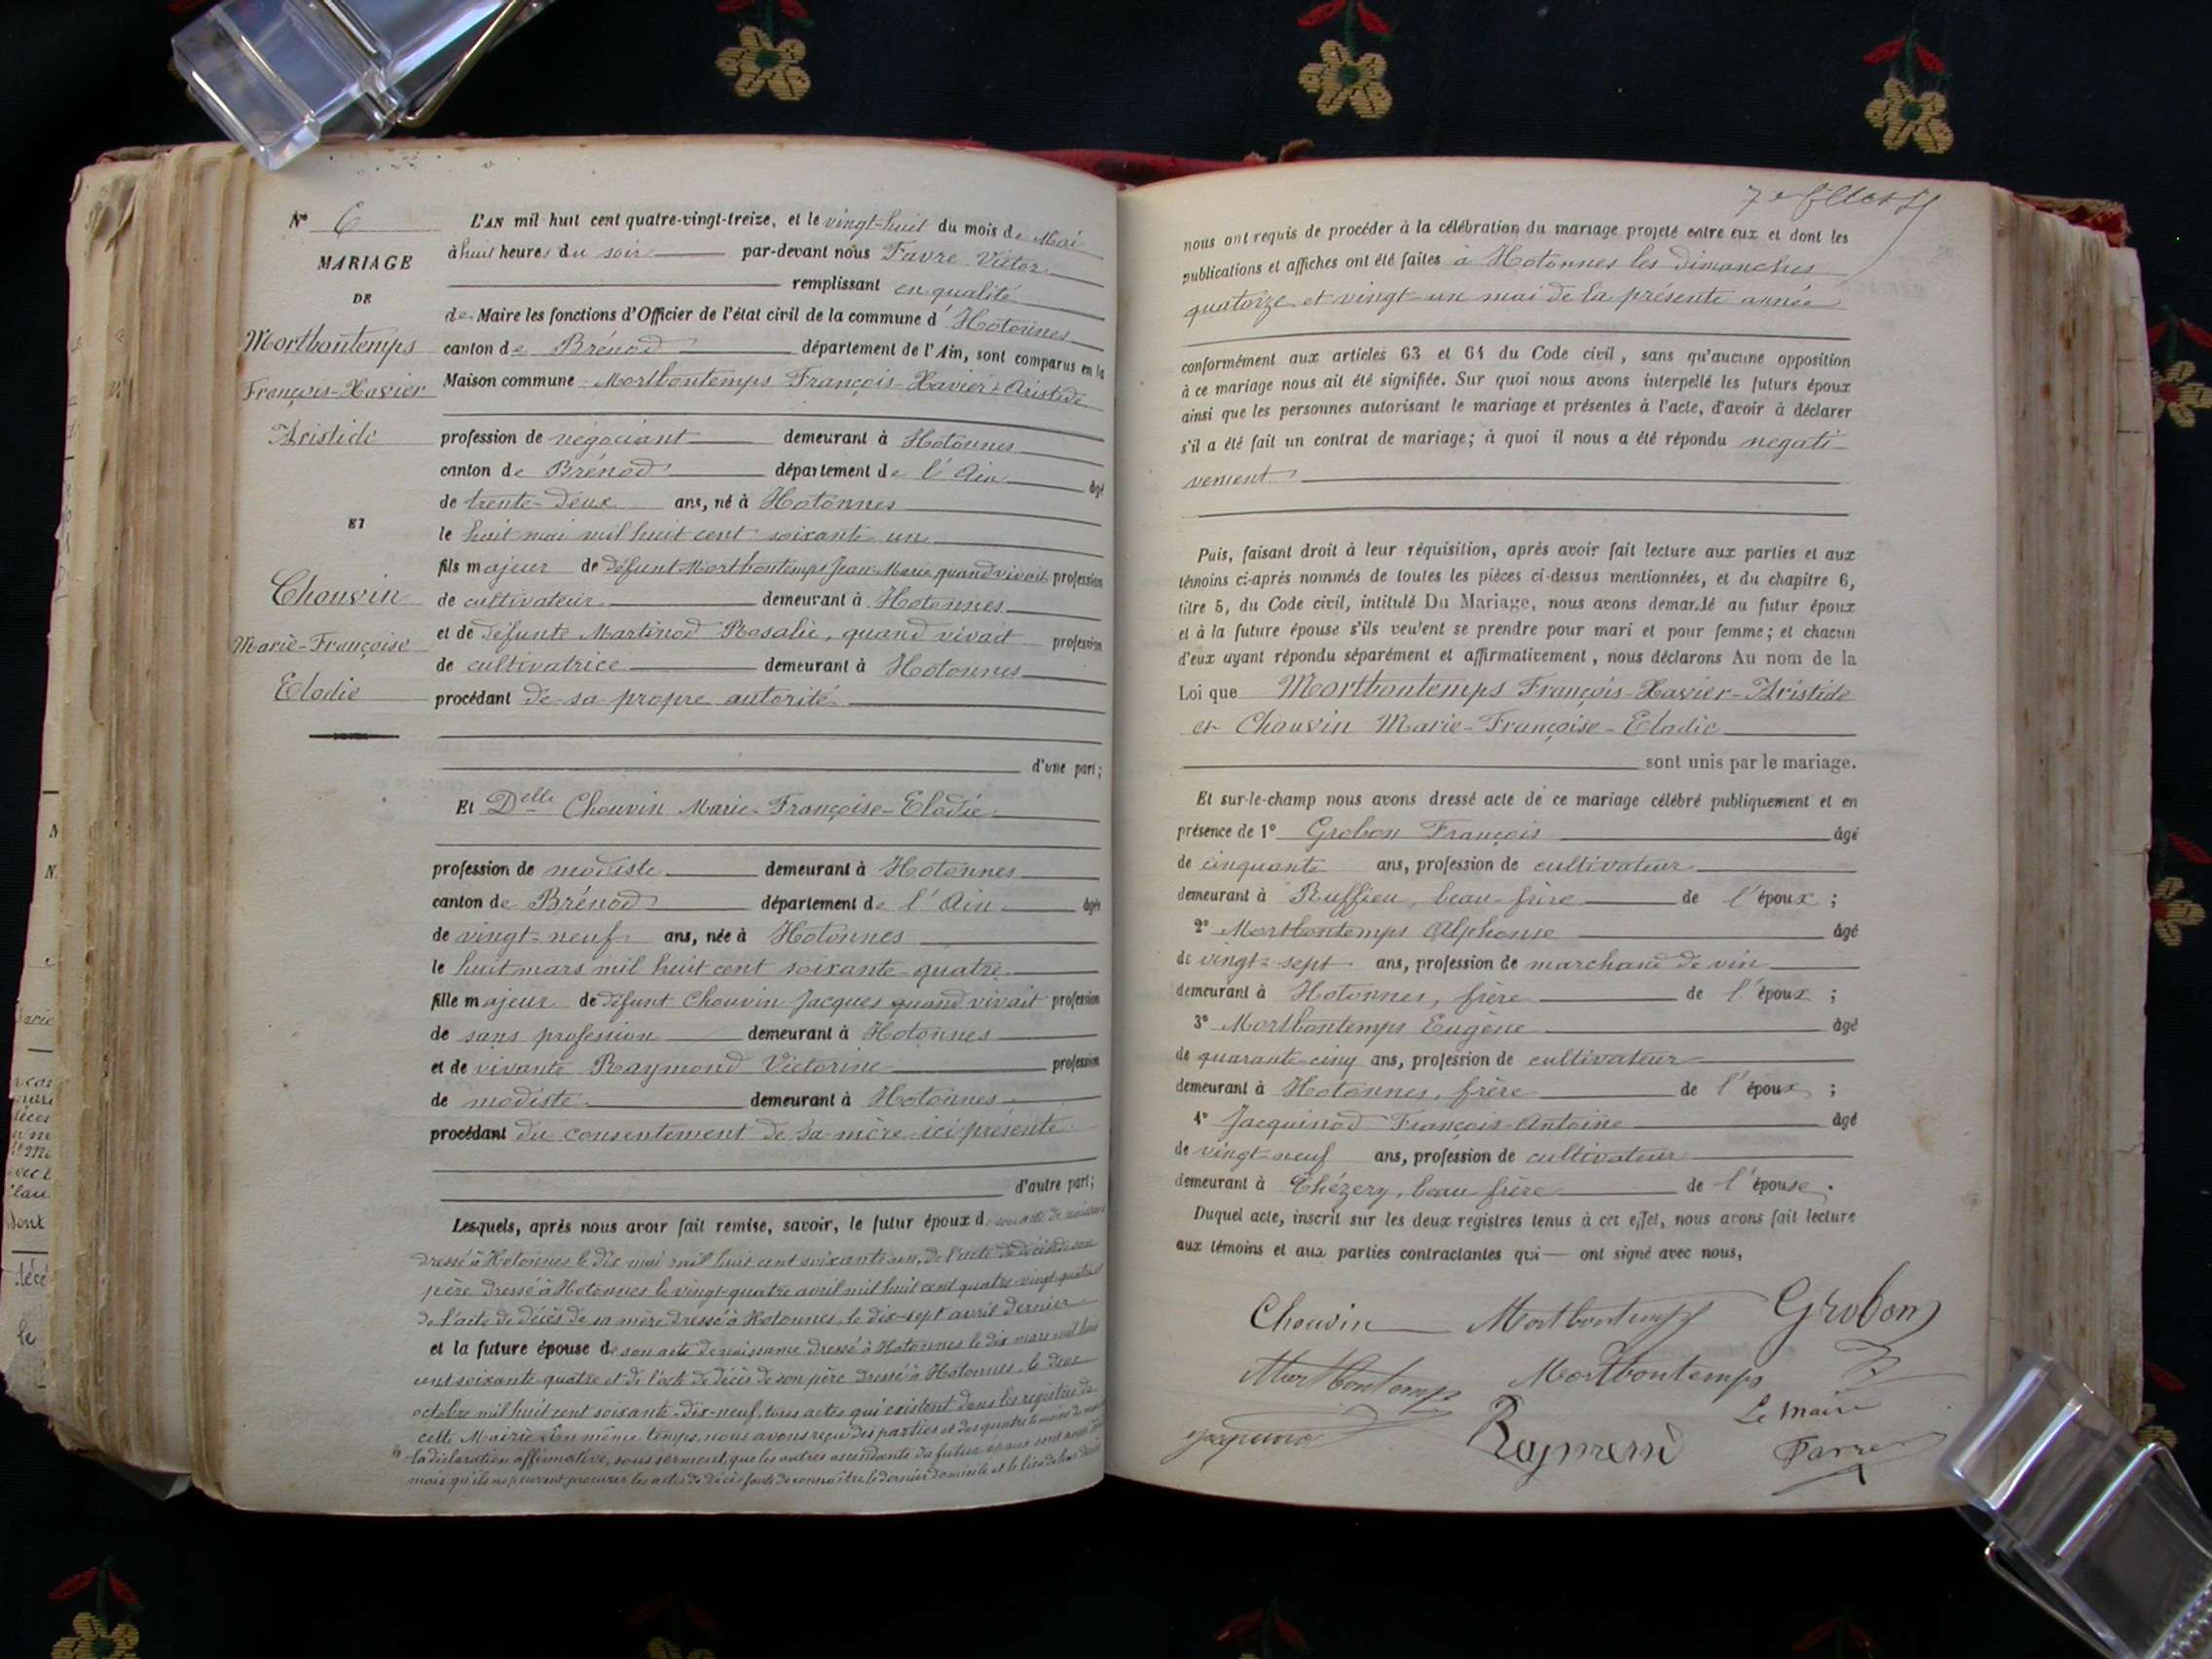 N° 6
MARIAGE
DE
Mortbontemps
François-Xavier
Aristide
ET
Chouvin
Marie-Françoise
Elodie
L'AN mil huit cent quatre-vingt-treize, et le vingt-huit du mois de Mai
à huit heures du soir par-devant nous Favre Victor
remplissant en qualité
de Maire les fonctions d'Officier de l'état civil de la commune d'Hotonnes
canton de Brénod département de l'Ain, sont comparus en la
Maison commune : Mortbontemps François-Xavier-Aristide
profession de négociant demeurant à Hotonnes
canton de Brénod département de l'Ain âgé
de trente-deux ans, né à Hotonnes
le huit mai mil huit cent soixante un
fils majeur de défunt Mortbontemps Jean-Marie quand vivait profession
de cultivateur demeurant à Hotonnes
et de défunte Martinod Rosalie, quand vivait profession
de cultivatrice demeurant à Hotonnes
procédant de sa propre autorité
d'une part ;
Et Delle Chouvin Marie-Françoise-Elodie
profession de modiste demeurant à Hotonnes
canton de Brénod département de l'Ain âgée
de vingt-neuf ans, née à Hotonnes
le huit mars mil huit cent soixante-quatre
fille majeur de défunt Chouvin Jacques quand vivait profession
de sans profession demeurant à Hotonnes
et de vivante Raymond Victorine profession
de modiste demeurant à Hotonnes
procédant du consentement de sa mère ici présente
d'autre part ;
Lesquels, après nous avoir fait remise, savoir, le futur époux de son acte de naissance
dressé à Hotonnes le dix mai mil huit cent soixante un, de l'acte de décès de son
père dressé à Hotonnes le vingt-quatre avril mil huit cent quatre-vingt-quatre et
de l'acte de décès de sa mère dressé à Hotonnes, le dix-sept avril dernier
et la future épouse de son acte de naissance dressé à Hotonnes le dix mars mil huit
cent soixante-quatre et de l'acte de décès de son père dressé à Hotonnes, le deux
octobre mil huit cent soixante-dix-neuf, tous actes qui existent dans les registres de
cette Mairie. En même temps, nous avons reçu des parties et des quatre témoins de
la déclaration affirmative, sous serment, que les autres ascendants du futur époux sont
mais qu'ils ne peuvent procurer les actes de décès faute de connaître le dernier domicile et le lieu de leur décès
nous ont requis de procéder à la célébration du mariage projeté entre eux et dont les
publications et affiches ont été faites à Hotonnes les dimanches
quatorze et vingt-un mai de la présente année
conformément aux articles 63 et 64 du Code civil, sans qu'aucune opposition
à ce mariage nous ait été signifiée. Sur quoi nous avons interpellé les futurs époux
ainsi que les personnes autorisant le mariage et présentes à l'acte, d'avoir à déclarer
s'il a été fait un contrat de mariage ; à quoi il nous a été répondu négati
vement
Puis, faisant droit à leur réquisition, après avoir fait lecture aux parties et aux
témoins ci-après nommés de toutes les pièces ci-dessus mentionnées, et du chapitre 6,
titre 5, du Code civil, intitulé Du Mariage, nous avons demandé au futur époux
et à la future épouse s'ils veulent se prendre pour mari et pour femme ; et chacun
d'eux ayant répondu séparément et affirmativement, nous déclarons Au nom de la
Loi que Mortbontemps François-Xavier-Aristide
et Chouvin Marie-Françoise-Elodie
sont unis par le mariage.
Et sur-le-champ nous avons dressé acte de ce mariage célébré publiquement et en
présence de 1° Grobon François âgé
de cinquante ans, profession de cultivateur
demeurant à Ruffieu, beau-frère de l'époux ;
2° Mortbontemps Alphonse âgé
de vingt-sept ans, profession de marchand de vin
demeurant à Hotonnes, frère de l'époux ;
3° Mortbontemps Eugène âgé
de quarante-cinq ans, profession de cultivateur
demeurant à Hotonnes, frère de l'époux ;
4° Jacquinod François-Antoine âgé
de vingt-neuf ans, profession de cultivateur
demeurant à Chézery, beau-frère de l'épouse.
Duquel acte, inscrit sur les deux registres tenus à cet effet, nous avons fait lecture
aux témoins et aux parties contractantes qui ont signé avec nous,
Chouvin Mortbontemps Grobon
Mortbontemps Mortbontemps
Raymond
Le Maire
Favre